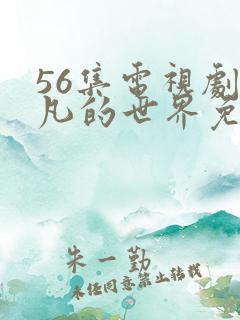 56集電視劇
凡的世界免
朱一勤
未任同意禁止转載